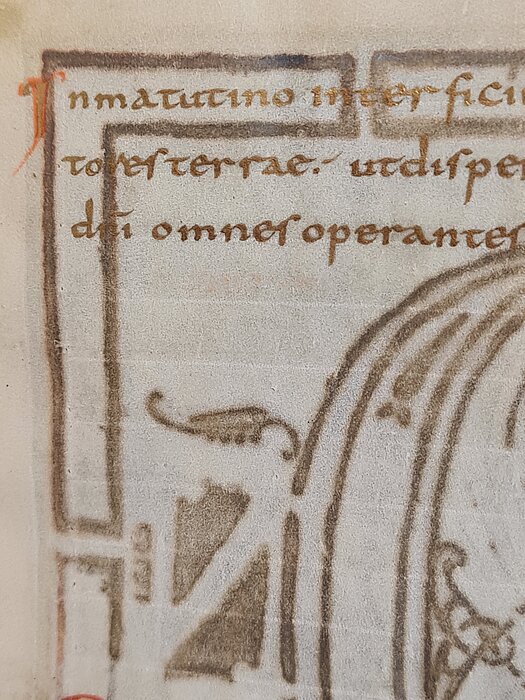 In matutino interfici
tores terrae. ut disper
dni omnes operantes